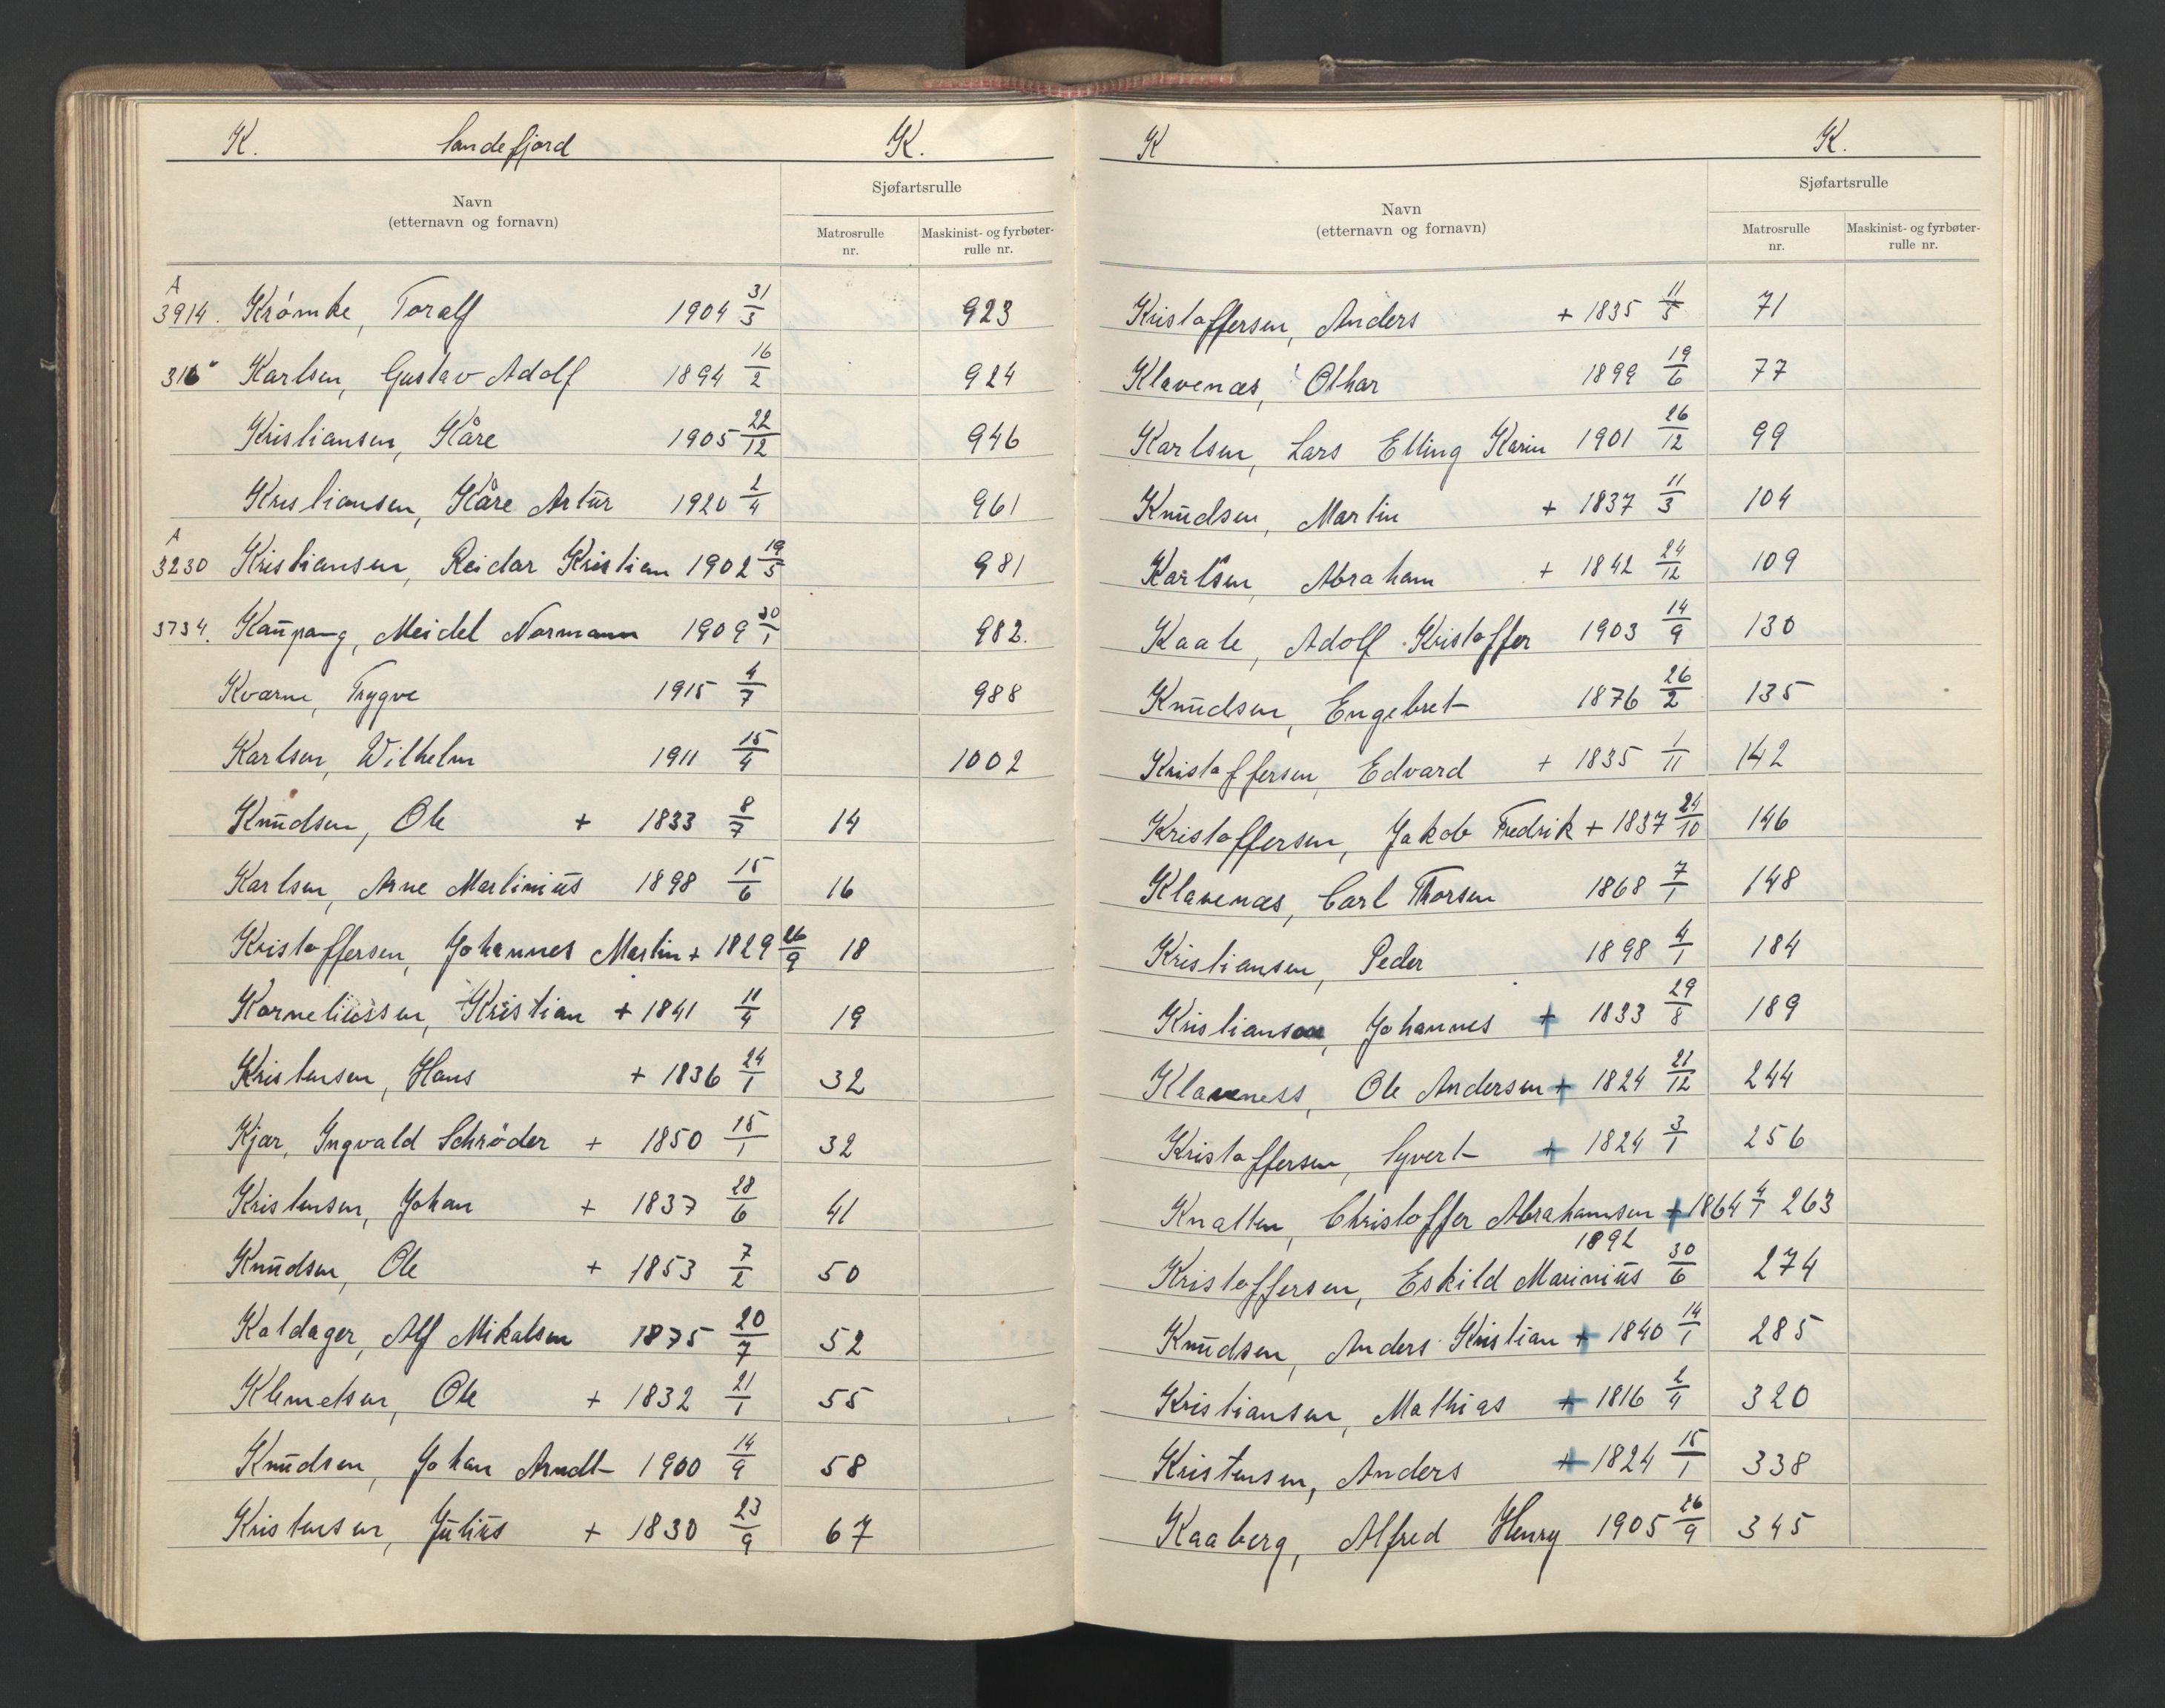 K. Sandefjord K.
Navn
(etternavn og fornavn)
Sjøfartsrulle
Matrosrulle
nr.
Maskinist- og fyrbøter-
rulle nr.
A
3914. Krømke, Toralf 1904 31/3 923
316 Karlsen, Gustav Adolf 1894 16/2 924
Kristiansen, Kåre 1905 22/12 946
Kristiansen, Kåre Artur 1920 2/4 961
A
3230 Kristiansen, Reidar Kristian 1902 19/5 981
3734. Kaupang, Meidel Normann 1909 30/1 982.
Kvarne, Trygve 1915 4/7 988
Karlsen, Wilhelm 1911 15/4 1002
Knudsen, Ole + 1833 8/7 14
Karlsen, Arne Martinius 1898 15/6 16
Kristoffersen, Johannes Martin + 1829 26/9 18
Korneliussen, Kristian + 1841 11/4 19
Kristensen, Hans + 1836 24/1 32
Kjær, Ingvald Schrøder + 1850 15/1 32
Kristensen, Johan + 1837 28/6 41
Knudsen, Ole + 1853 7/2 50
Kaldager, Alf Mikalsen 1875 20/7 52
Klemetsen, Ole + 1832 21/1 55
Knudsen, Johan Arndt 1900 14/9 58
Kristensen, Julius + 1830 23/9 67
K K.
Navn
(etternavn og fornavn)
Sjøfartsrulle
Matrosrulle
nr.
Maskinist- og fyrbøter-
rulle nr.
Kristoffersen, Anders + 1835 11/5 71
Klavenæs, Othar 1899 19/6 77
Karlsen, Lars Elling Karin 1901 26/12 99
Knudsen, Martin + 1837 11/3 104
Karlsen, Abraham + 1842 24/12 109
Kaale, Adolf Kristoffer 1903 14/9 130
Knudsen, Engebret 1876 26/2 135
Kristoffersen, Edvard + 1835 1/11 142
Kristoffersen, Jakob Fredrik + 1837 24/10 146
Klavenæs, Carl Thorsen 1868 7/1 148
Kristiansen, Peder 1898 4/1 184
Kristiansen, Johannes + 1833 29/8 189
Klaveness, Ole Andersen + 1824 21/12 244
Kristoffersen, Syvert + 1824 3/1 256
Knatten, Christoffer Abrahamsen + 1864 4/7 263
Kristoffersen, Eskild Marinius 1892 30/6 274
Knudsen, Anders Kristian + 1840 14/1 285
Kristiansen, Mathias + 1816 2/4 320
Kristensen, Anders + 1824 15/1 338
Kaaberg, Alfred Henry 1905 26/9 345